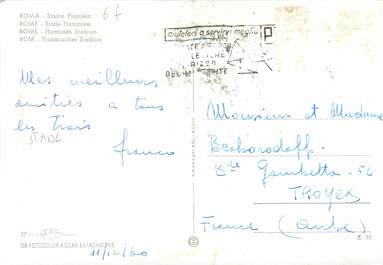 ROMA - Stadio Flaminio
ROME - Stade Flaminien
ROME - Flaminian Stadium
ROM - Flaminisches Stadium
67
aiutateci a servirvi meglio
P
Mes meilleurs
amitiés a tous
les trois
STADE
franco
Monsieur et Madame
Besborodoff.
Bde Gambetta. 56
TROYES
France (Aube)
DA FOTOCOLOR KODAK EKTACHROME
11/12/60